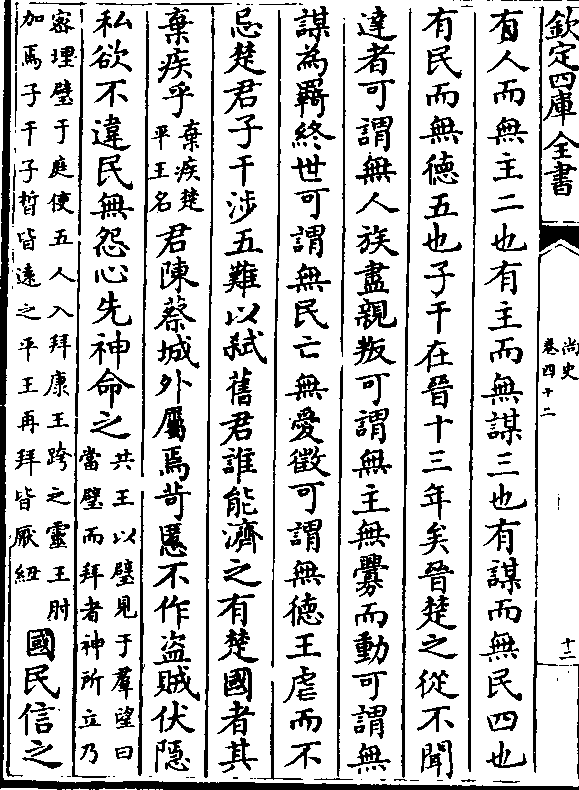 欽定四庫全書
尚史
卷四十二
十二
有人而無主二也有主而無謀三也有謀而無民四也
有民而無德五也子干在晉十三年矣晉楚之從不聞
達者可謂無人族盡親叛可謂無主無釁而動可謂無
謀為羇終世可謂無民亡無愛徵可謂無德王虐而不
忌楚君子干涉五難以弑舊君誰能濟之有楚國者其
棄疾乎
棄疾楚
平王名
君陳蔡城外屬焉苛慝不作盗賊伏隱
私欲不違民無怨心先神命之
共王以璧見于羣望曰
當璧而拜者神所立乃
密埋璧于庭使五人入拜康王跨之靈王肘
加焉子干子晳皆遠之平王再拜皆厭紐
國民信之